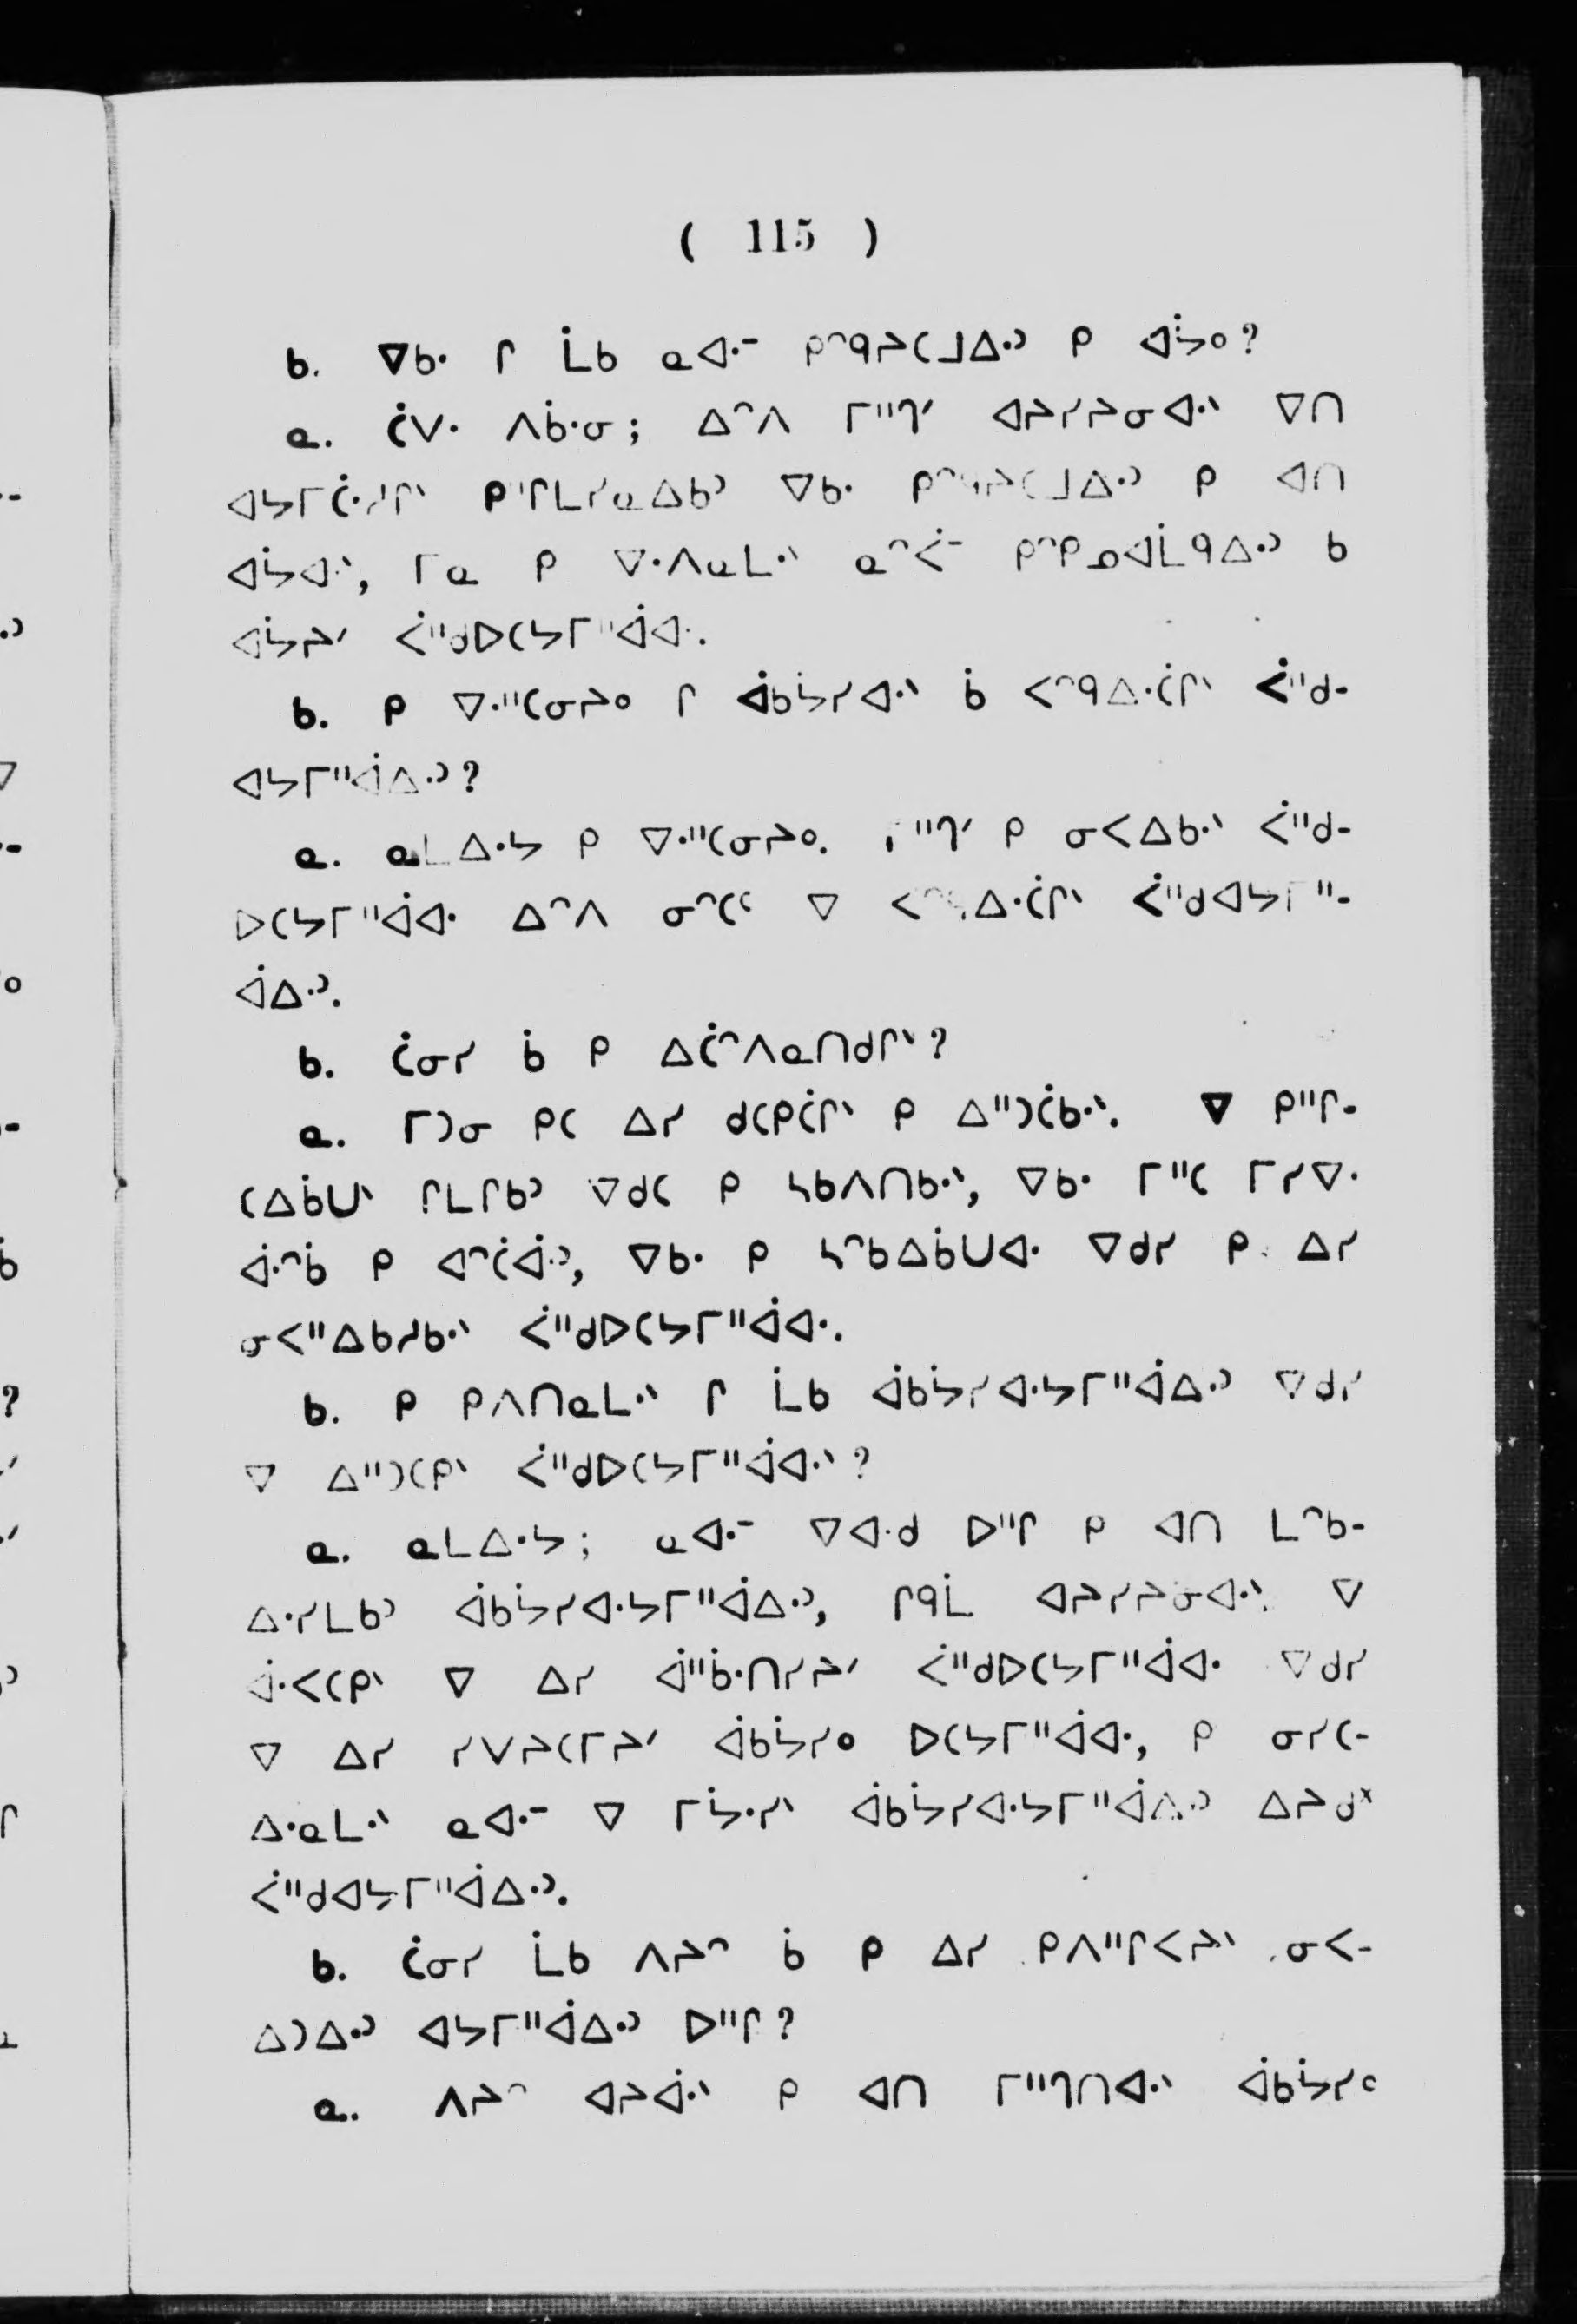 ( 115 )
ᑲ. ᐁᑲᐧ ᒋ ᒫᑲ ᓇᐊᐧᐨ ᑭᐢᑫᔨᑕᒧᐃᐧᐣ ᑭ ᐊᔮᐤ?
ᓇ. ᑖᐯᐧ ᐱᑳᐧᓂ; ᐃᐢᐱ ᒥᐦᒉᐟ ᐊᔨᓯᔨᓂᐊᐧᐠ ᐁᑎ
ᐊᔭᒥᑖᐧᓱᒋᐠ ᑭᐦᒋᒪᓯᓇᐃᑲᐣ ᐁᑲᐧ ᑭᐢᑫᔨᑕᒧᐃᐧᐣ ᑭ ᐊᑎ
ᐊᔮᐊᐧᐠ, ᒥᓇ ᑭ ᐁᐧᐱᓇᒪᐧᐠ ᓇᐢᐹᐨ ᑭᐢᑭᓄᐊᒫᑫᐃᐧᐣ ᑲ
ᐊᔮᔨᐟ ᐹᐦᑯᐅᑕᔭᒥᐦᐋᐊᐧ.
ᑲ. ᑭ ᐁᐧᐦᑕᓂᔨᐤ ᒋ ᐋᑲᔮᓯᐊᐧᐠ ᑳ ᐸᐢᑫᐃᐧᑖᒋᐠ ᐹᐦᑯ-
ᐊᔭᒥᐦᐋᐃᐧᐣ?
ᓇ. ᓇᒪᐃᐧᔭ ᑭ ᐁᐧᐦᑕᓂᔨᐤ. ᒥᐦᒉᐟ ᑭ ᓂᐸᐃᑲᐧᐠ ᐹᐦᑯ-
ᐅᑕᔭᒥᐦᐋᐊᐧ ᐃᐢᐱ ᓂᐢᑕᒼ ᐁ ᐸᐢᑫᐃᐧᑖᒋᐠ ᐹᐦᑯᐊᔭᒥᐦ-
ᐋᐃᐧᐣ.
ᑲ. ᑖᓂᓯ ᑳ ᑭ ᐃᑖᐢᐱᓇᑎᑯᒋᐠ?
ᓇ. ᒥᑐᓂ ᑭᑕ ᐃᓯ ᑯᑕᑭᑖᒋᐠ ᑭ ᐃᐦᑐᑖᑲᐧᐠ. ᐁ ᑭᐦᒋ-
ᑕᐃᑳᑌᐠ ᒋᒪᒋᑲᐣ ᐁᑯᑕ ᑭ ᓴᑲᐱᑎᑲᐧᐠ, ᐁᑲᐧ ᒥᐦᑕ ᒥᓯᐁᐧ
ᐋᐧᐢᑳ ᑭ ᐊᐢᑖᐋᐧᐣ, ᐁᑲᐧ ᑭ ᓴᐢᑲᐃᑳᑌᐊᐧ ᐁᑯᓯ ᑭ ᐃᓯ
ᓂᐸᐦᐃᑲᓱᑲᐧᐠ ᐹᐦᑯᐅᑕᔭᒥᐦᐋᐊᐧ.
ᑲ. ᑭ ᑭᐱᑎᓇᒪᐧᐠ ᒋ ᒫᑲ ᐋᑲᔮᓯᐊᐧᔭᒥᐦᐋᐃᐧᐣ ᐁᑯᓯ
ᐁ ᐃᐦᑐᑕᑭᐠ ᐹᐦᑯᐅᑕᔭᒥᐦᐋᐊᐧᐠ?
ᓇ. ᓇᒪᐃᐧᔭ; ᓇᐊᐧᐨ ᐁᐊᐧᑯ ᐅᐦᒋ ᑭ ᐊᑎ ᒪᐢᑲ-
ᐃᐧᓯᒪᑲᐣ ᐋᑲᔮᓯᐊᐧᔭᒥᐦᐋᐃᐧᐣ, ᒋᑫᒫ ᐊᔨᓯᔨᓂᐊᐧᐠ ᐁ
ᐋᐧᐸᑕᑭᐠ ᐁ ᐃᓯ ᐋᐦᑳᐧᑎᓯᔨᐟ ᐹᐦᑯᐅᑕᔭᒥᐦᐋᐊᐧ ᐁᑯᓯ
ᐁ ᐃᓯ ᓯᐯᔨᑕᒥᔨᐟ ᐋᑲᔮᓯᐤ ᐅᑕᔭᒥᐦᐋᐊᐧ, ᑭ ᓂᓯᑕ-
ᐃᐧᓇᒪᐧᐠ ᓇᐊᐧᐨ ᐁ ᒥᔮᐧᓯᐠ ᐋᑲᔮᓯᐊᐧᔭᒥᐦᐋᐃᐧᐣ ᐃᔨᑯᕽ
ᐹᐦᑯᐊᔭᒥᐦᐋᐃᐧᐣ.
ᑲ. ᑖᓂᓯ ᒫᑲ ᐱᔨᐢ ᑳ ᑭ ᐃᓯ ᑭᐱᐦᒋᐸᔨᐠ ᓂᐸ-
ᐃᑐᐃᐧᐣ ᐊᔭᒥᐦᐋᐃᐧᐣ ᐅᐦᒋ?
ᓇ. ᐱᔨᐢ ᐊᔨᐋᐧᐠ ᑭ ᐊᑎ ᒥᐦᒉᑎᐊᐧᐠ ᐋᑲᔮᓯᐤ